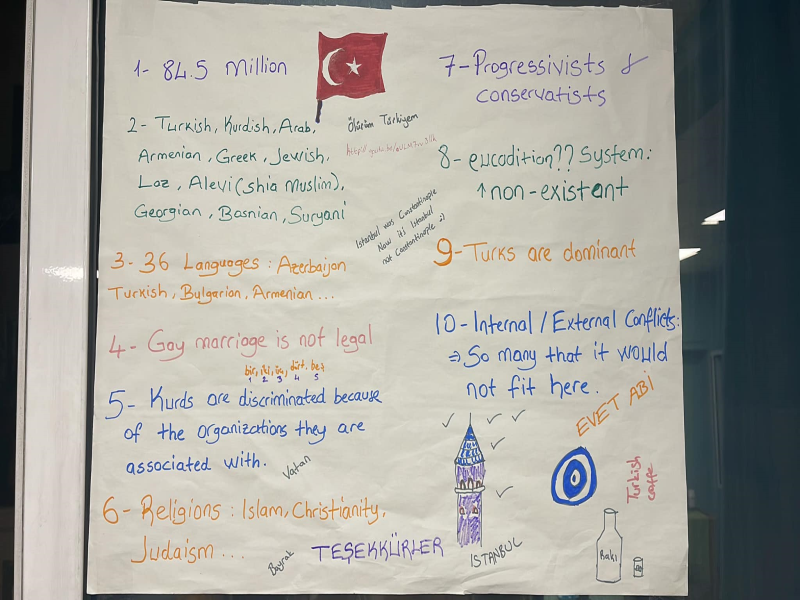 1- 84.5 Million
2- Turkish, Kurdish, Arab,
Armenian, Greek, Jewish,
Laz, Alevi (shia Muslim),
Georgian, Basnian, Suryani
Ölürüm Türkiyem
Istanbul was Constantinople
Now it's Istanbul
not Constantinople :)
3- 36 Languages : Azerbaijan
Turkish, Bulgarian, Armenian ...
4- Gay marriage is not legal
bir, iki, üç, dört, beş
1 2 3 4 5
5- Kurds are discriminated because
of the organizations they are
associated with.
Vatan
6- Religions : Islam, Christianity,
Judaism ...
Bayrak
TEŞEKKÜRLER
7- Progressivists &
conservatists
8- eucodition?? System:
↑ non-existant
9- Turks are dominant
10- Internal / External Conflicts:
⇒ So many that it would
not fit here.
EVET ABİ
ISTANBUL
Turkish
coffe